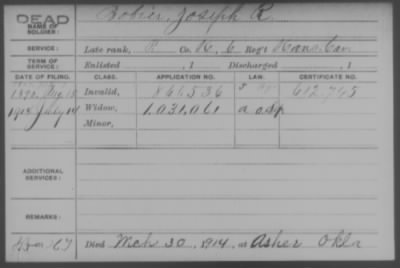 DEAD
NAME OF SOLDIER: Bobier, Joseph R.
SERVICE: Late rank, P Co. K, 6 Reg't Kans. Cav
TERM OF SERVICE: Enlisted , 1 Discharged , 1
DATE OF FILING. CLASS. APPLICATION NO. LAW. CERTIFICATE NO.
Invalid, 866,536 612,745
1914 July 14 Widow, 1,031,061
Minor,
ADDITIONAL SERVICES:
REMARKS:
Died Mch 30, 1914, at Asher Okla